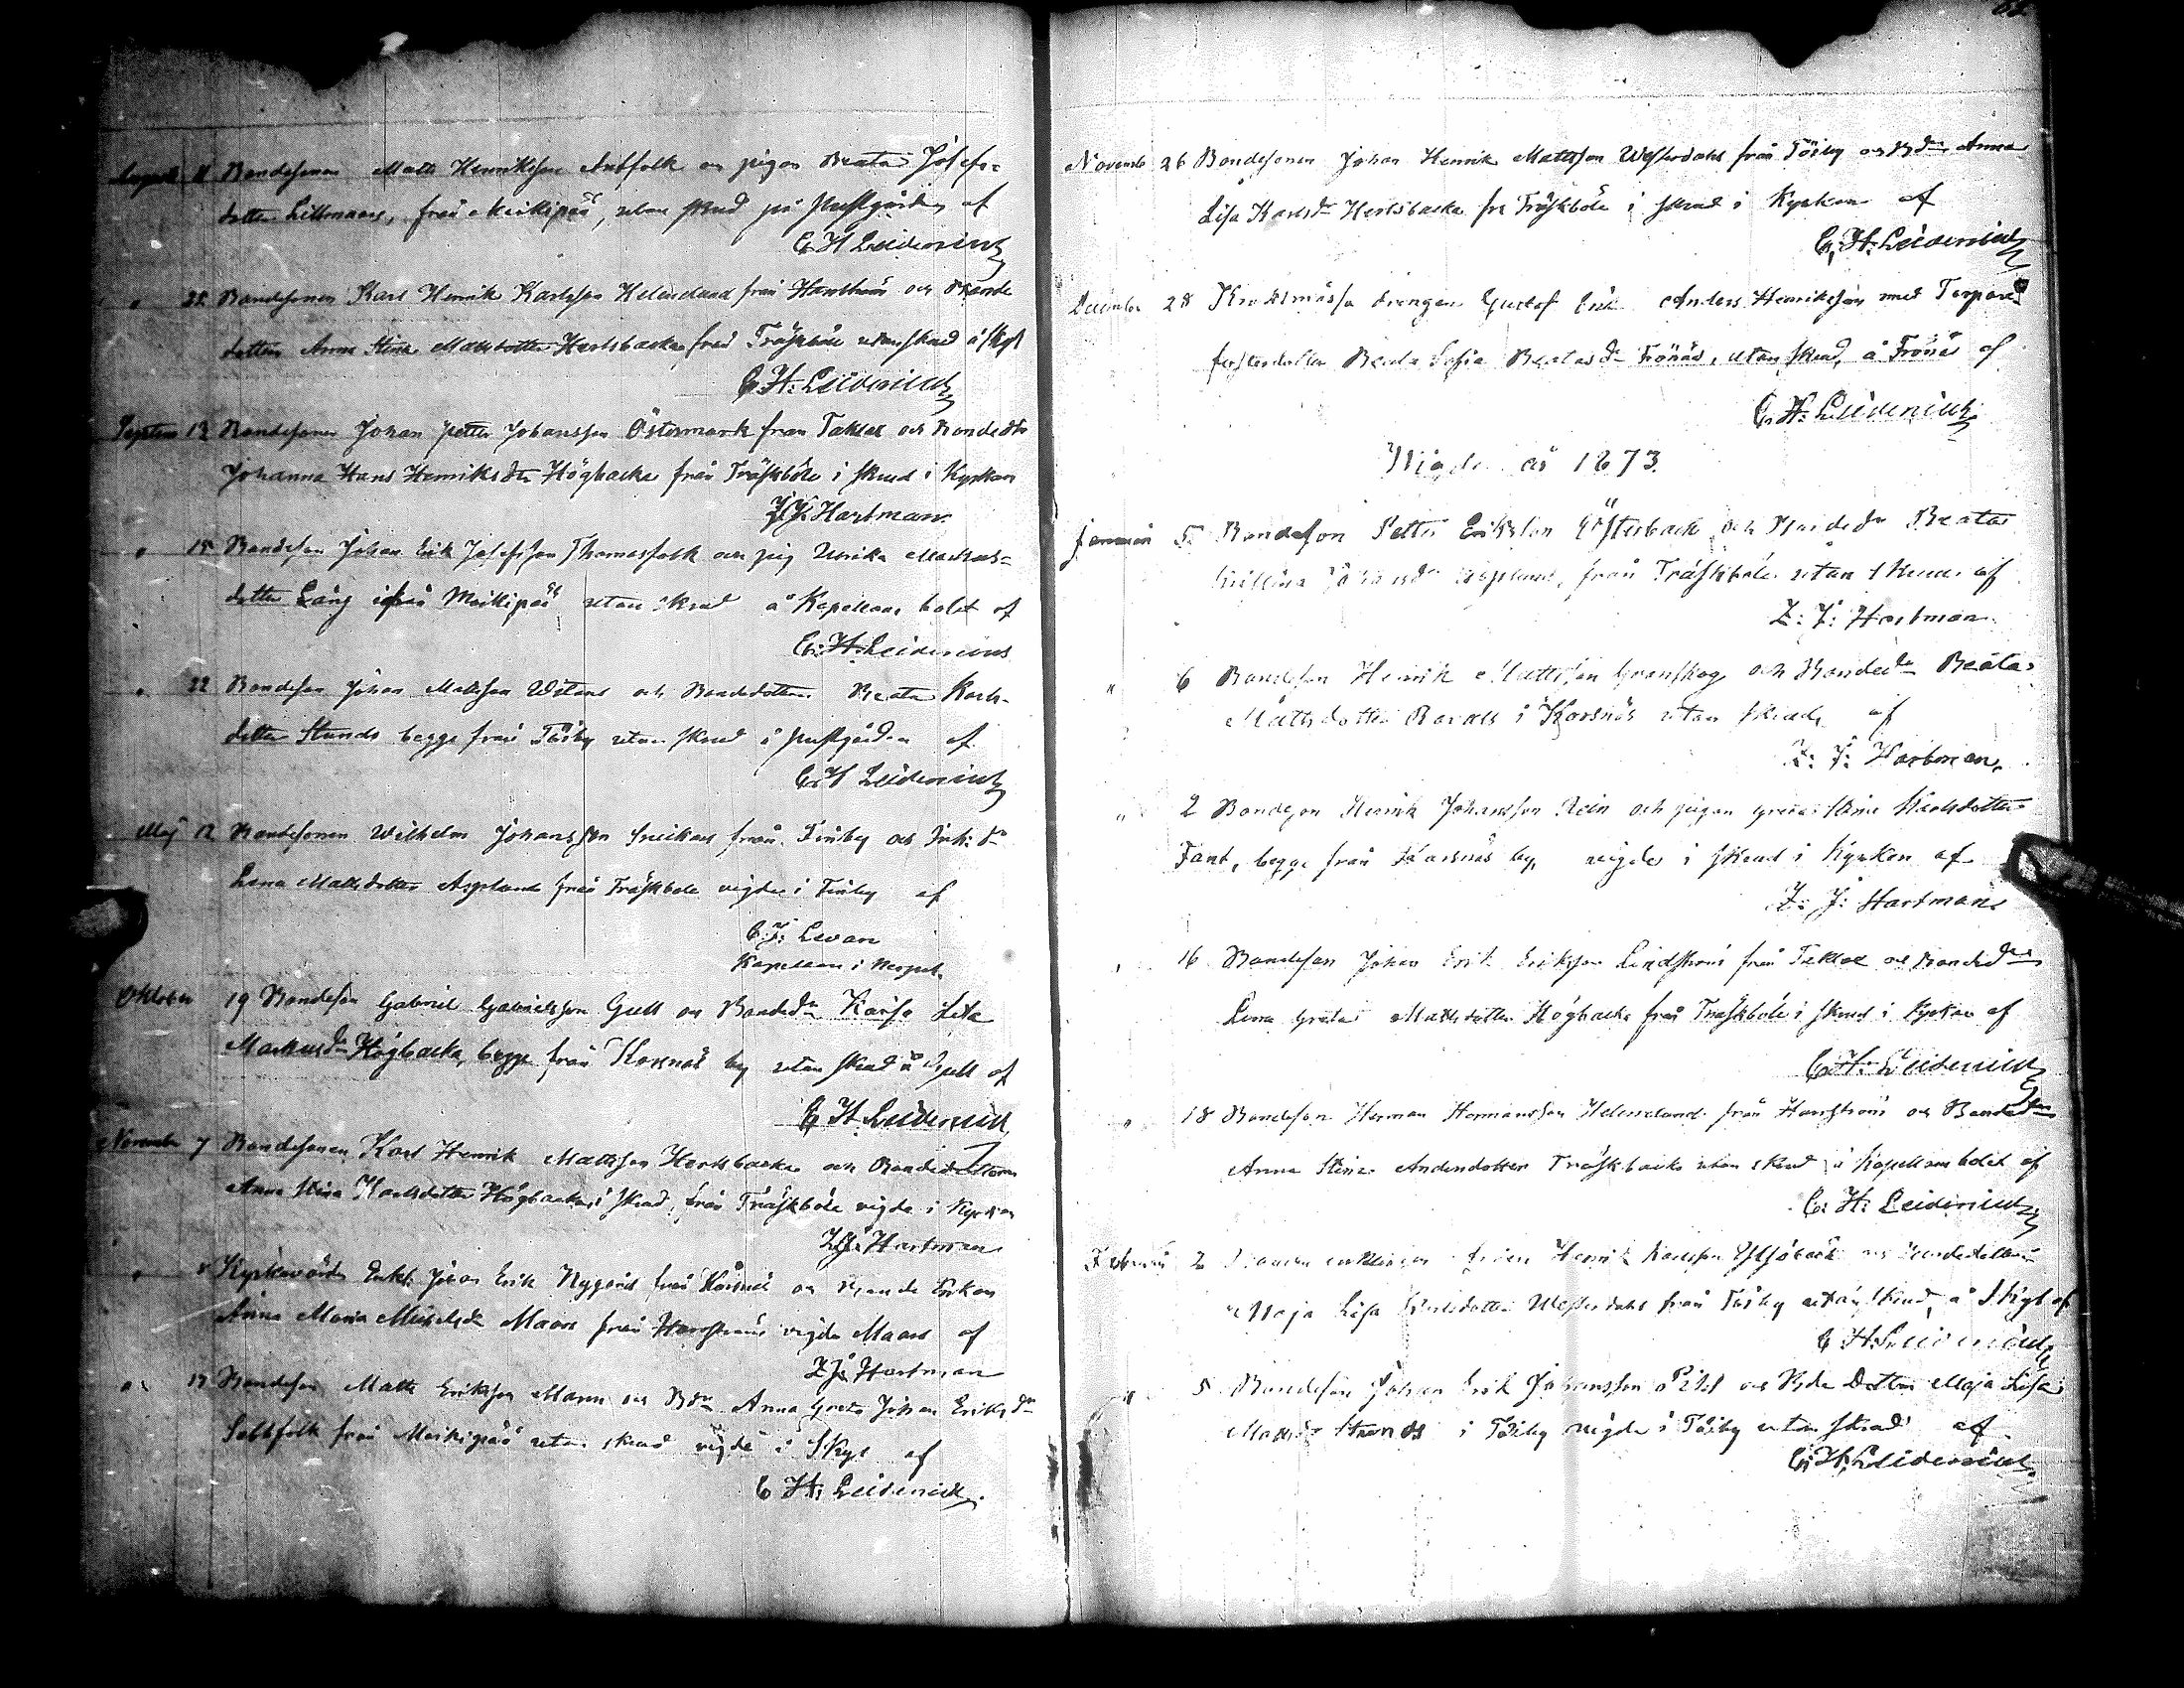 Augusti 11 Bondesonen Matts Henriksson Antfolk och pigan Beata Josefs-
dotter Lillmaars, från Molkipää, utan skrud på prestgården af
C. H. Leidenius
" 25 Bondesonen Karl Henrik Karlsson Helenelund från Harrström och Bonde
dottern Anna Stina Mattsdotter Herlsbacka från Träskböle utan skrud å skgt
C. H. Leidenius
Septem 13 Bondesonen Johan Petter Johansson Östermark från Taklax och Bondedtr
Johanna Hans Henriksdtr Högbacka från Träskböle i skrud i Kyrkan
Z. J. Hartman
" 15 Bondeson Johan Erik Josefsson Thomasfolk och pig Ulrika Markus-
dotter Lång ifrån Molkipää utan skrud å Kapellans bolet af
C. H. Leidenius
" 22 Bondeson Johan Mattsson Westers och Bondedottern Beata Karls-
dotter Strands begge från Töjby utan skrud å prestgården af
C. H. Leidenius
Maj 12 Bondesonen Wilhelm Johansson från Finby och Ink: dr
Lena Mattsdotter Asplund från Träskböle vigde i Finby af
C. J. Levan
Kapellan i Nerpes
Oktober 19 Bondeson Gabriel Gabrielsson Gull och Bonded:r Kajsa Lisa
Markusdr Högbacka, begge från Korsnäs by utan skrud å Gull af
C. H. Leidenius
November 7 Bondesonen Karl Henrik Mattsson Herlsbacka och Bondedottern
Anna Stina Karlsdotter Högbacka i skrud, från Träskböle vigde i Kyrkan
Z. J. Hartman
" Kyrkovärden Enkl: Johan Erik Nygård från Korsnäs och Bonde Enkan
Anna Maria Mickelsdr Maars från Harrström vigde Maars af
Z. J. Hartman
" 17 Bondeson Matts Eriksson Mann och Bdr Anna Greta Johan Eriksdr
från Molkipää utan skrud vigde i Skgt af
C. H. Leidenius
November 26 Bondesonen Johan Henrik Mattsson Westerdahl från Töjby och Bdr Anna
Lisa Karlsdr Herlsbacka fr Träskböle i skrud i Kyrkan af
C. H. Leidenius
December 28 drengen Gustaf Erik Anders Henriksson med Torpare
fosterdotter Beata Sofia Beatasdr Frönäs, utan skrud, å Frönäs af
C. H. Leidenius
Vigde år 1873.
Januari 5 Bondeson Petter Eriksson Österback och Bondedr Beata
Kristina Johansdr Asplund, från Träskböle utan skrud af
Z: J: Hartman
" 6 Bondeson Henrik Mattsson Granskog och Bondedr Beata
Mattsdotter Bavals i Korsnäs utan skrud af
Z: J: Hartman
" 2 Bondeson Henrik Johansson Rein och pigan Greta Stina Karlsdotter
Fant, begge från Korsnäs by, vigde i skrud i Kyrkan af
Z: J: Hartman
" 16 Bondeson Johan Erik Eriksson Lindström från Taklax och Bondedr
Lena Greta Mattsdotter Högbacka från Träskböle i skrud i Kyrkan af
C. H. Leidenius
" 18 Bondeson Herman Hermansson Helenelund från Harrström och Bondedr
Anna Stina Andersdotter Träskbacka utan skrud å Kapellans bolet af
C. H. Leidenius
Februari 2 enklingen Henrik Karlsson och Bondedottern
Maja Lisa Karlsdotter Westerdahl från Töjby utan skrud, å Skgt af
C. H. Leidenius
" 5 Bondeson Johan Erik Johansson och Bde Dotter Maja Lisa
Mattsdr Strands i Töjby vigde i Töjby utan skrud af
C. H. Leidenius